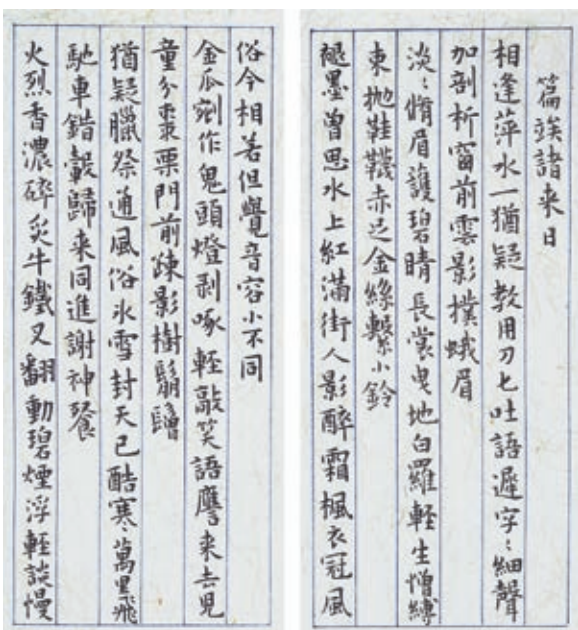 篇竢諸来日
相逢萍水一猶疑教用刀匕吐語遲字〻細聲
加剖析窗前雲影撲蛾眉
淡〻脩眉護碧睛長裳曳地白羅輕生憎縛
束拋鞋韈赤足金絲繫小鈴
褪墨曾思水上紅滿街人影醉霜楓衣冠風
俗今相若但覺音容小不同
金瓜剜作鬼頭燈剥啄輕敲笑語譍来去兒
童分棗栗門前疎影樹鬅鬙
猶疑臘祭通風俗氷雪封天已酷寒萬里飛
馳車錯轂歸来同進謝神餐
火烈香濃碎炙牛鐵叉翻動碧煙浮輕談慢